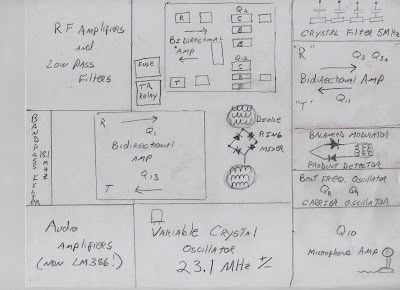 RF Amplifiers
and
Low Pass
Filters
Q2
R
C
B
E
BIDIRECTIONAL
AMP
Q12
C
B
E
T
FUSE
TR
Relay
CRYSTAL FILTER 5MHz
"R"
Q3 Q3A
Bidirectional Amp
"T"
Q11
BANDPASS FILTER
18.1
MHz
R
Q1
BIDIRECTIONAL
AMP
Q13
T
DIODE
RING
MIXER
BALANCED MODULATOR
PRODUCT DETECTOR
Beat Freq. Oscillator
Q8 Q9
CARRIER OSCILLATOR
Audio
Amplifiers
(NON LM386!)
VARIABLE CRYSTAL
OSCILLATOR
23.1 MHz +/-
Q10
Microphone Amp